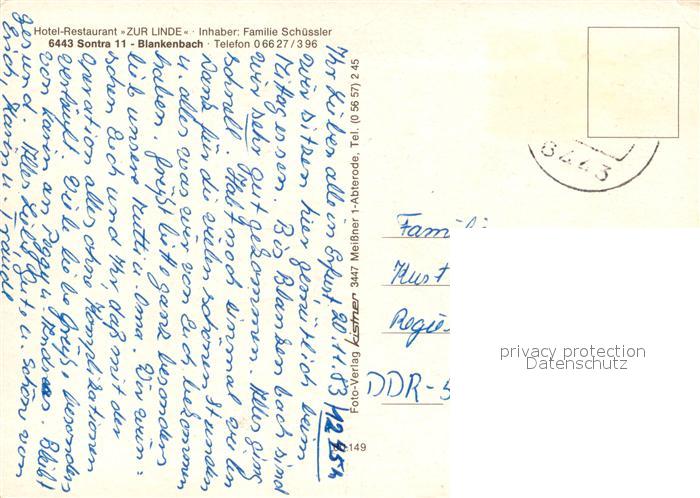 Hotel-Restaurant »ZUR LINDE« · Inhaber: Familie Schüssler
6443 Sontra 11 - Blankenbach · Telefon 0 66 27 / 3 96
Ihr Lieben alle in Erfurt, 20.11.83 / 12.45h
wir sitzen hier gemütlich beim
Mittagessen. Bis Blankenbach sind
wir sehr gut gekommen. Alles ging
schnell. Habt noch einmal vielen
Dank für die vielen schönen Stunden
u. alles was wir von Euch bekommen
haben. Grüßt bitte ganz besonders
lieb unsere Mutti u. Oma. Wir wün=
schen Euch und Ihr, daß mit der
Operation alles ohne Komplikationen
verläuft. Viele liebe Grüße besonders
von Karin an Peggy u. Andreas. Bleibt
gesund. Alles Liebe, Gute u. Schöne von
Erich, Karin u. Traudel
Foto-Verlag Kistner 3447 Meißner 1-Abterode, Tel. (0 56 57) 2 45
149
6443
Famili
Kurt
Regie
DDR-5
privacy protection
Datenschutz